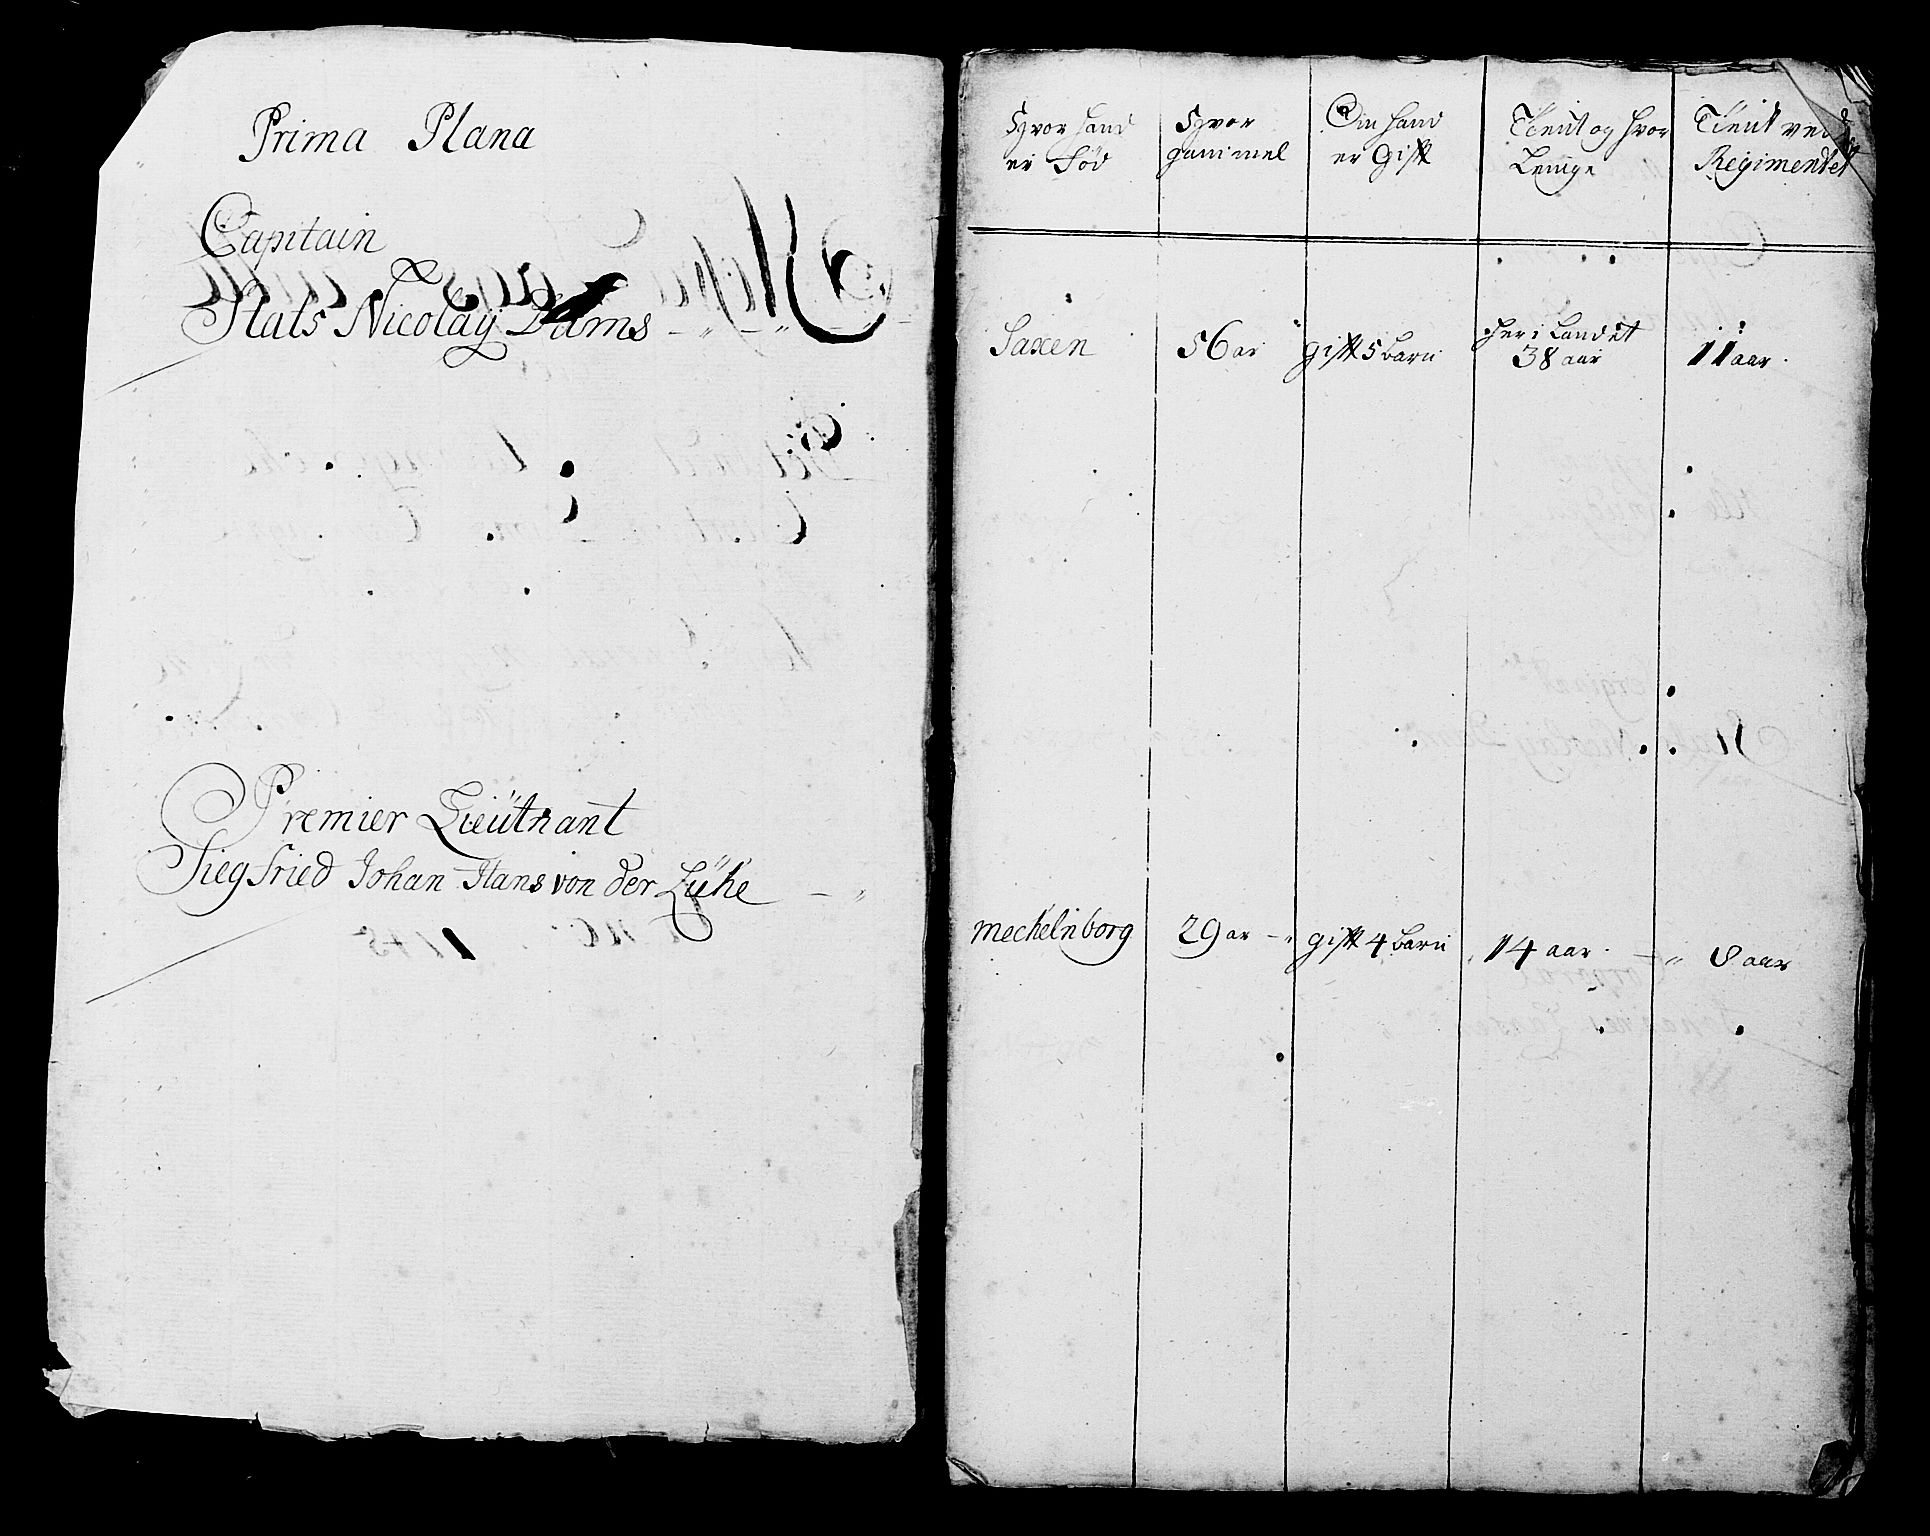 Prima Plana
Capitain
Hals Nicolaÿ Dams
Premier Lieütnant
Siegfried Johan Hans von der Lÿhe
Hvor hand
er Död
Hvor
gammel
Om hand
er Gift
Tient og hvor
Lenge
Tient ved
Regimentet
Saxen
56 ar
gift 5 barn
her i Landet
38 aar
11 aar
mechelnborg
29 ar
gift 4 barn
14 aar
8 aar